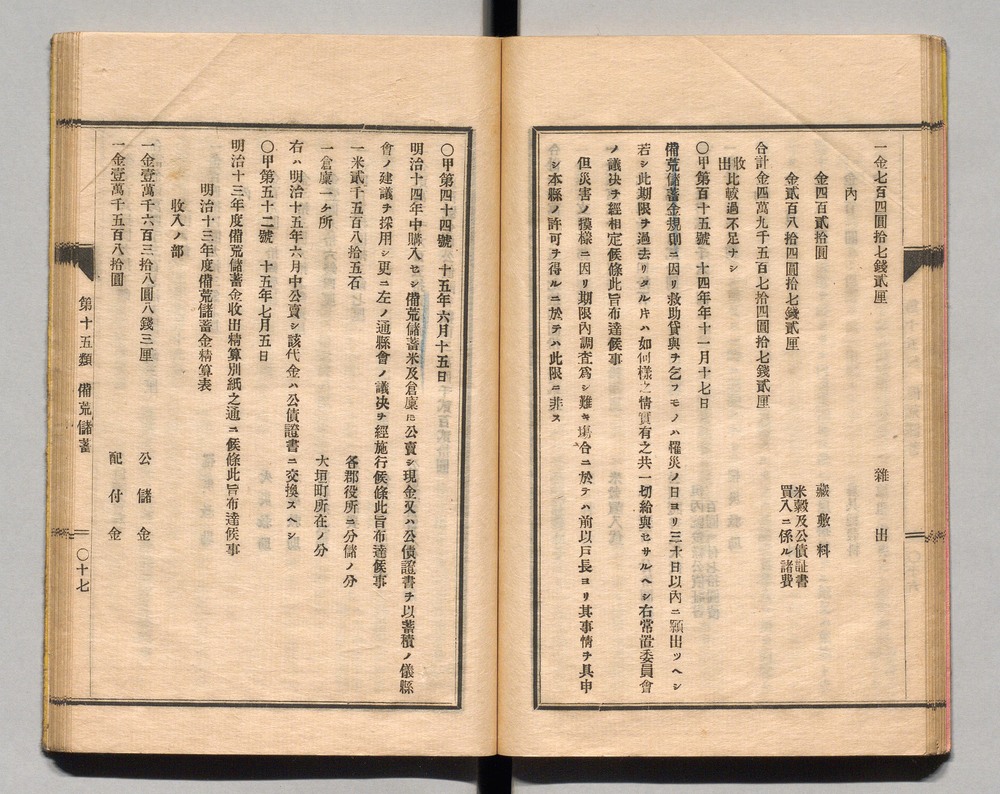 一金七百四圓拾七錢貳厘　雜出
內
金四百貳拾圓　藏敷料
金貳百八拾四圓拾七錢貳厘　米穀及公債証書買入ニ係ル諸費
合計金四萬九千五百七拾四圓拾七錢貳厘
收出比較過不足ナシ
〇甲第百十五號　十四年年十一月十七日
備荒儲蓄金規則ニ因リ救助貸與ヲ乞フモノハ罹災ノ日ヨリ三十日以內ニ願出ツヘシ
若シ此期限ヲ過去リタル片ハ如何樣之情實有之共一切給與セサルヘシ右常置委員會
ノ議决ヲ經相定候條此旨布達候事
但災害ノ摸樣ニ因リ期限內調査爲シ難キ塲合ニ於テハ前以戸長ヨリ其事情ヲ具申
シ本縣ノ許可ヲ得ルニ於テハ此限ニ非ス
〇甲第四十四號　十五年六月十五日
明治十四年中購入セシ備荒儲蓄米及倉廩ヲ公賣シ現金又ハ公債證書ヲ以蓄積ノ儀縣
會ノ建議ヲ採用シ更ニ左ノ通縣會ノ議决ヲ經施行候條此旨布達候事
一米貳千五百八拾五石　各郡役所ニ分儲ノ分
一倉廩一ケ所　大垣町所在ノ分
右ハ明治十五年六月中公賣シ該代金ハ公債證書ニ交換スヘシ
〇甲第五十二號　十五年七月五日
明治十三年度備荒儲蓄金收出精算別紙之通ニ候條此旨布達候事
明治十三年度備荒儲蓄金精算表
收入ノ部
一金壹萬千六百三拾八圓八錢三厘　公儲金
一金壹萬千五百八拾圓　配付金
第十五類　備荒儲蓄　〇十七